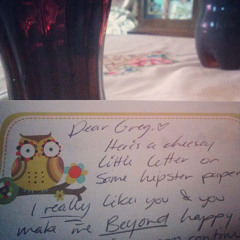 Dear Greg,♡
Here's a cheesy
little letter on
some hipster paper
I really likes you & you
make me Beyond happy
continu